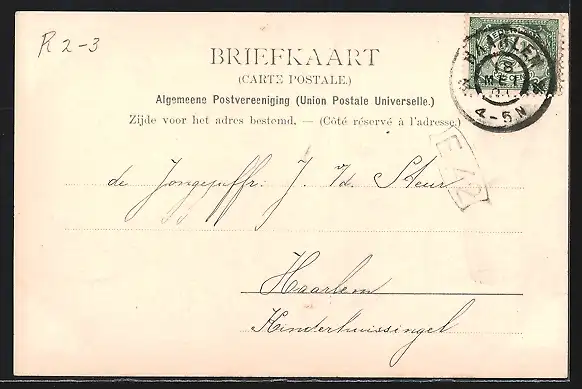 R 2-3
BRIEFKAART
(CARTE POSTALE.)
Algemeene Postvereeniging (Union Postale Universelle.)
Zijde voor het adres bestemd. — (Côté réservé à l'adresse.)
HAARLEM
4-5N
E 42
de Jongejuffr. J. v/d. Steur
Haarlem
Kinderhuissingel